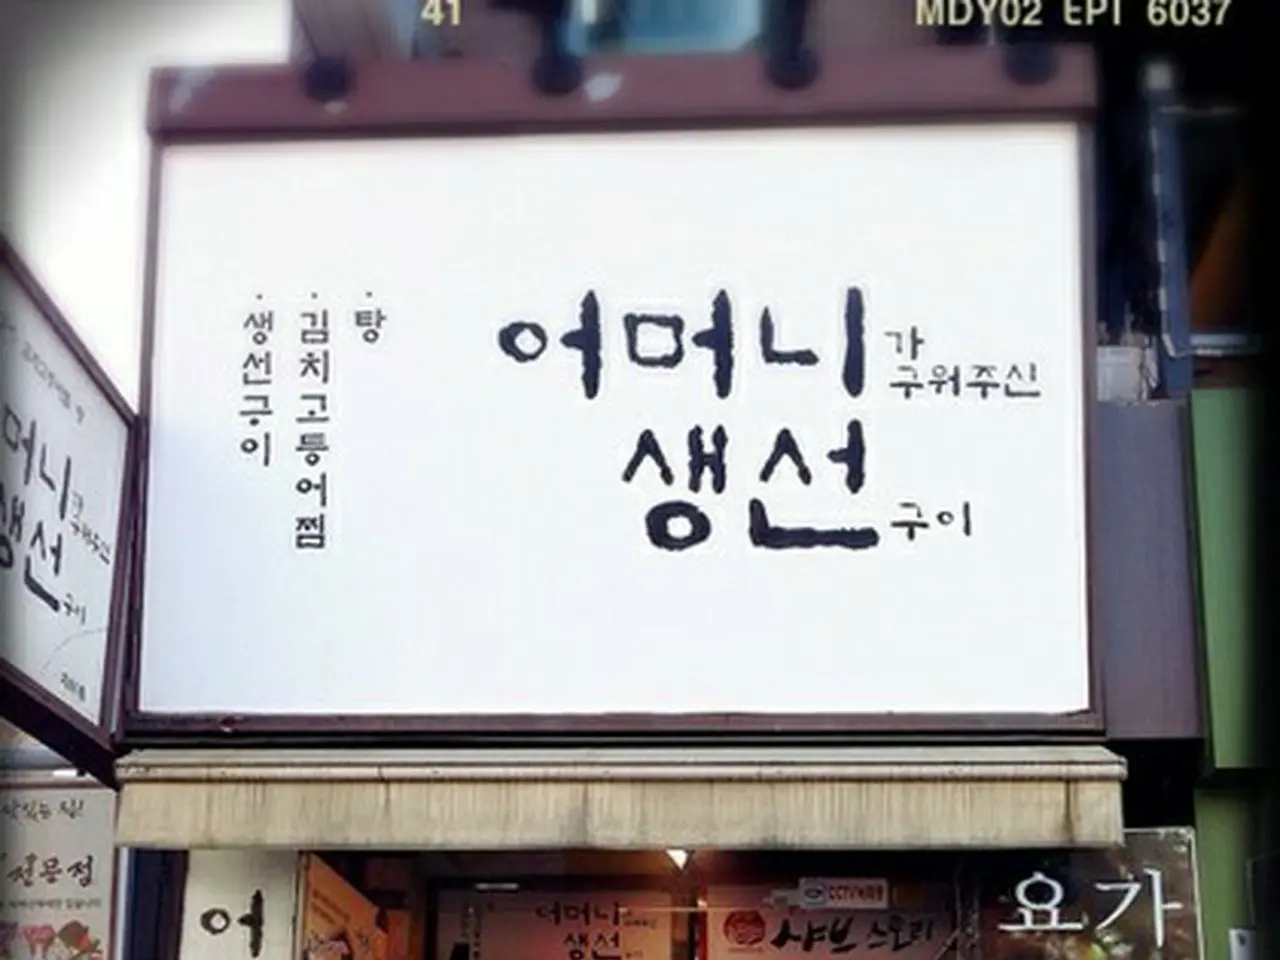 41
MDY02 EPT 6037
어머니가
구워주신
생선구이
· 생선구이
· 김치고등어찜
· 탕
머니가
구워주신
생선구이
전문점
어
어머니
생선
CCTV
샤브스토리
요가